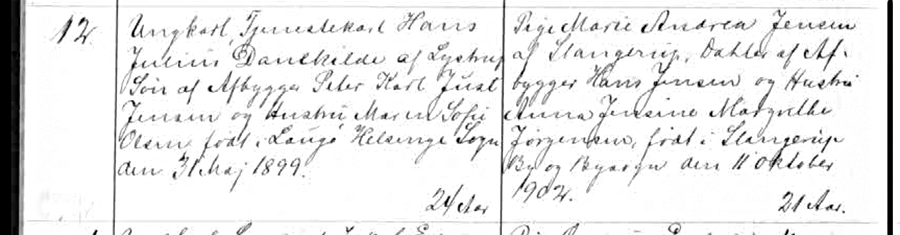 12.
Ungkarl, Tjenestekarl Hans
Julius Danskilde af Lystrup
Søn af Afbygger Peter Karl Just
Jensen og Hustru Maren Sofie
Olsen, født i Laugø Helsinge Sogn
den 31 Maj 1899.
24 Aar
Pige Marie Andrea Jensen
af Slangerup, Datter af Af-
bygger Hans Jensen og Hustru
Anna Jensine Margrethe
Jørgensen, født i Slangerup
By og Bysogn den 11 Oktober
1902.
21 Aar.